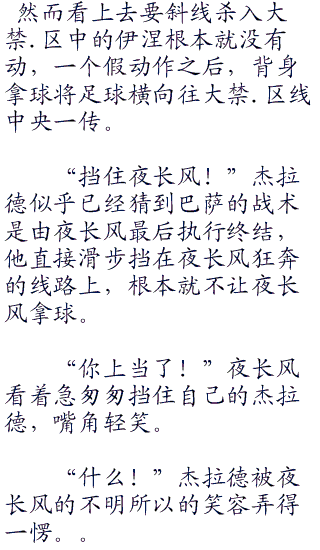 然而看上去要斜线杀入大
禁.区中的伊涅根本就没有
动，一个假动作之后，背身
拿球将足球横向往大禁.区线
中央一传。
“挡住夜长风！”杰拉
德似乎已经猜到巴萨的战术
是由夜长风最后执行终结，
他直接滑步挡在夜长风狂奔
的线路上，根本就不让夜长
风拿球。
“你上当了！”夜长风
看着急匆匆挡住自己的杰拉
德，嘴角轻笑。
“什么！”杰拉德被夜
长风的不明所以的笑容弄得
一愣。。